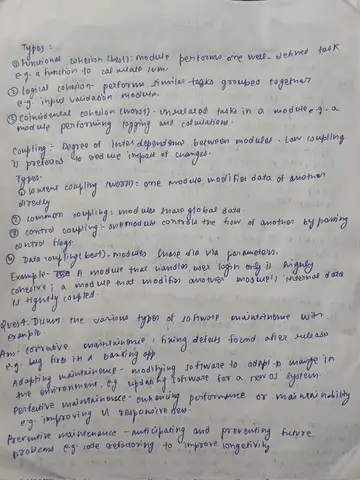 Types:
① Functional cohesion (best): module performs one well-defined task
e.g. a function to calculate sum.
② logical cohesion- performs similar tasks grouped together
e.g. input validation module.
③ Coincidental cohesion (worst)- unrelated tasks in a module e.g. a
module performing logging and calculations.
Coupling:- Degree of interdependence between modules. Low coupling
is preferred to reduce impact of changes.
Types:-
① Content coupling (worst): one module modifies data of another
directly
② common coupling: modules share global data.
③ control coupling:- one module controls the flow of another by passing
control flags.
④ Data coupling (best)- modules share data via parameters.
Example- A module that handles user login only is highly
cohesive; a module that modifies another module's internal data
is tightly coupled.
Ques4. Discuss the various types of software maintenance with
example.
Ans- corrective maintenance- fixing defects found after release
e.g. bug fixes in a banking app
Adapting maintenance- modifying software to adapt to change in
the environment. eg updating software for a new OS system.
Perfective maintenance- enhancing performance or maintainability
e.g. improving UI responsiveness.
Preventive maintenance- anticipating and preventing future
problems e.g. code refactoring to improve longetivity